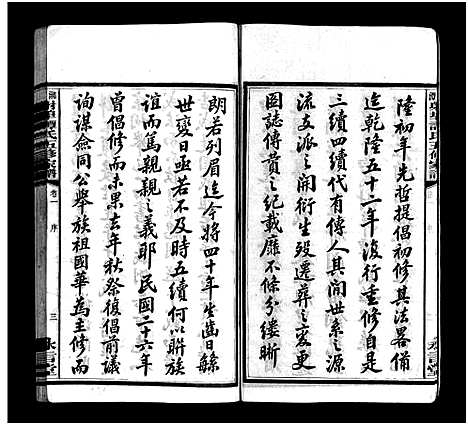 陸初年先哲提倡初修其法畧備
迄乾隆五十二年復行重修自是
三續四續代有傳人其間世系之源
流支派之開衍生歿遷葬之變更
圖誌傳贊之紀載靡不條分縷晰
朗若列眉迄今將四十年生齒日緜
世變日亟不及時五續何以聨族
誼而篤親親之義耶民國二十六年
曾倡修而未果去年秋祭復倡前議
詢謀僉同公舉族祖國華為主修而
氏五修
卷一
序
三
永言堂